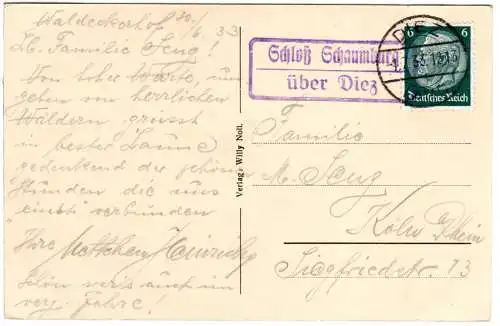 Waldeckerhof 30./6. 33
Lb. Familie Seng!
Von hoher Warte, um
geben von herrlichen
Wäldern grüsst
in bester Laune
gedenkend der schönen
Stunden die uns
einst verbunden
Ihre
schön war's auch im
vor. Jahre!
Verlag: Willy Noll.
Schloß Schaumburg
über Diez
DIEZ
6 6
Deutsches Reich
Familie
M. Seng
Köln Rhein
Siegfriedstr. 13